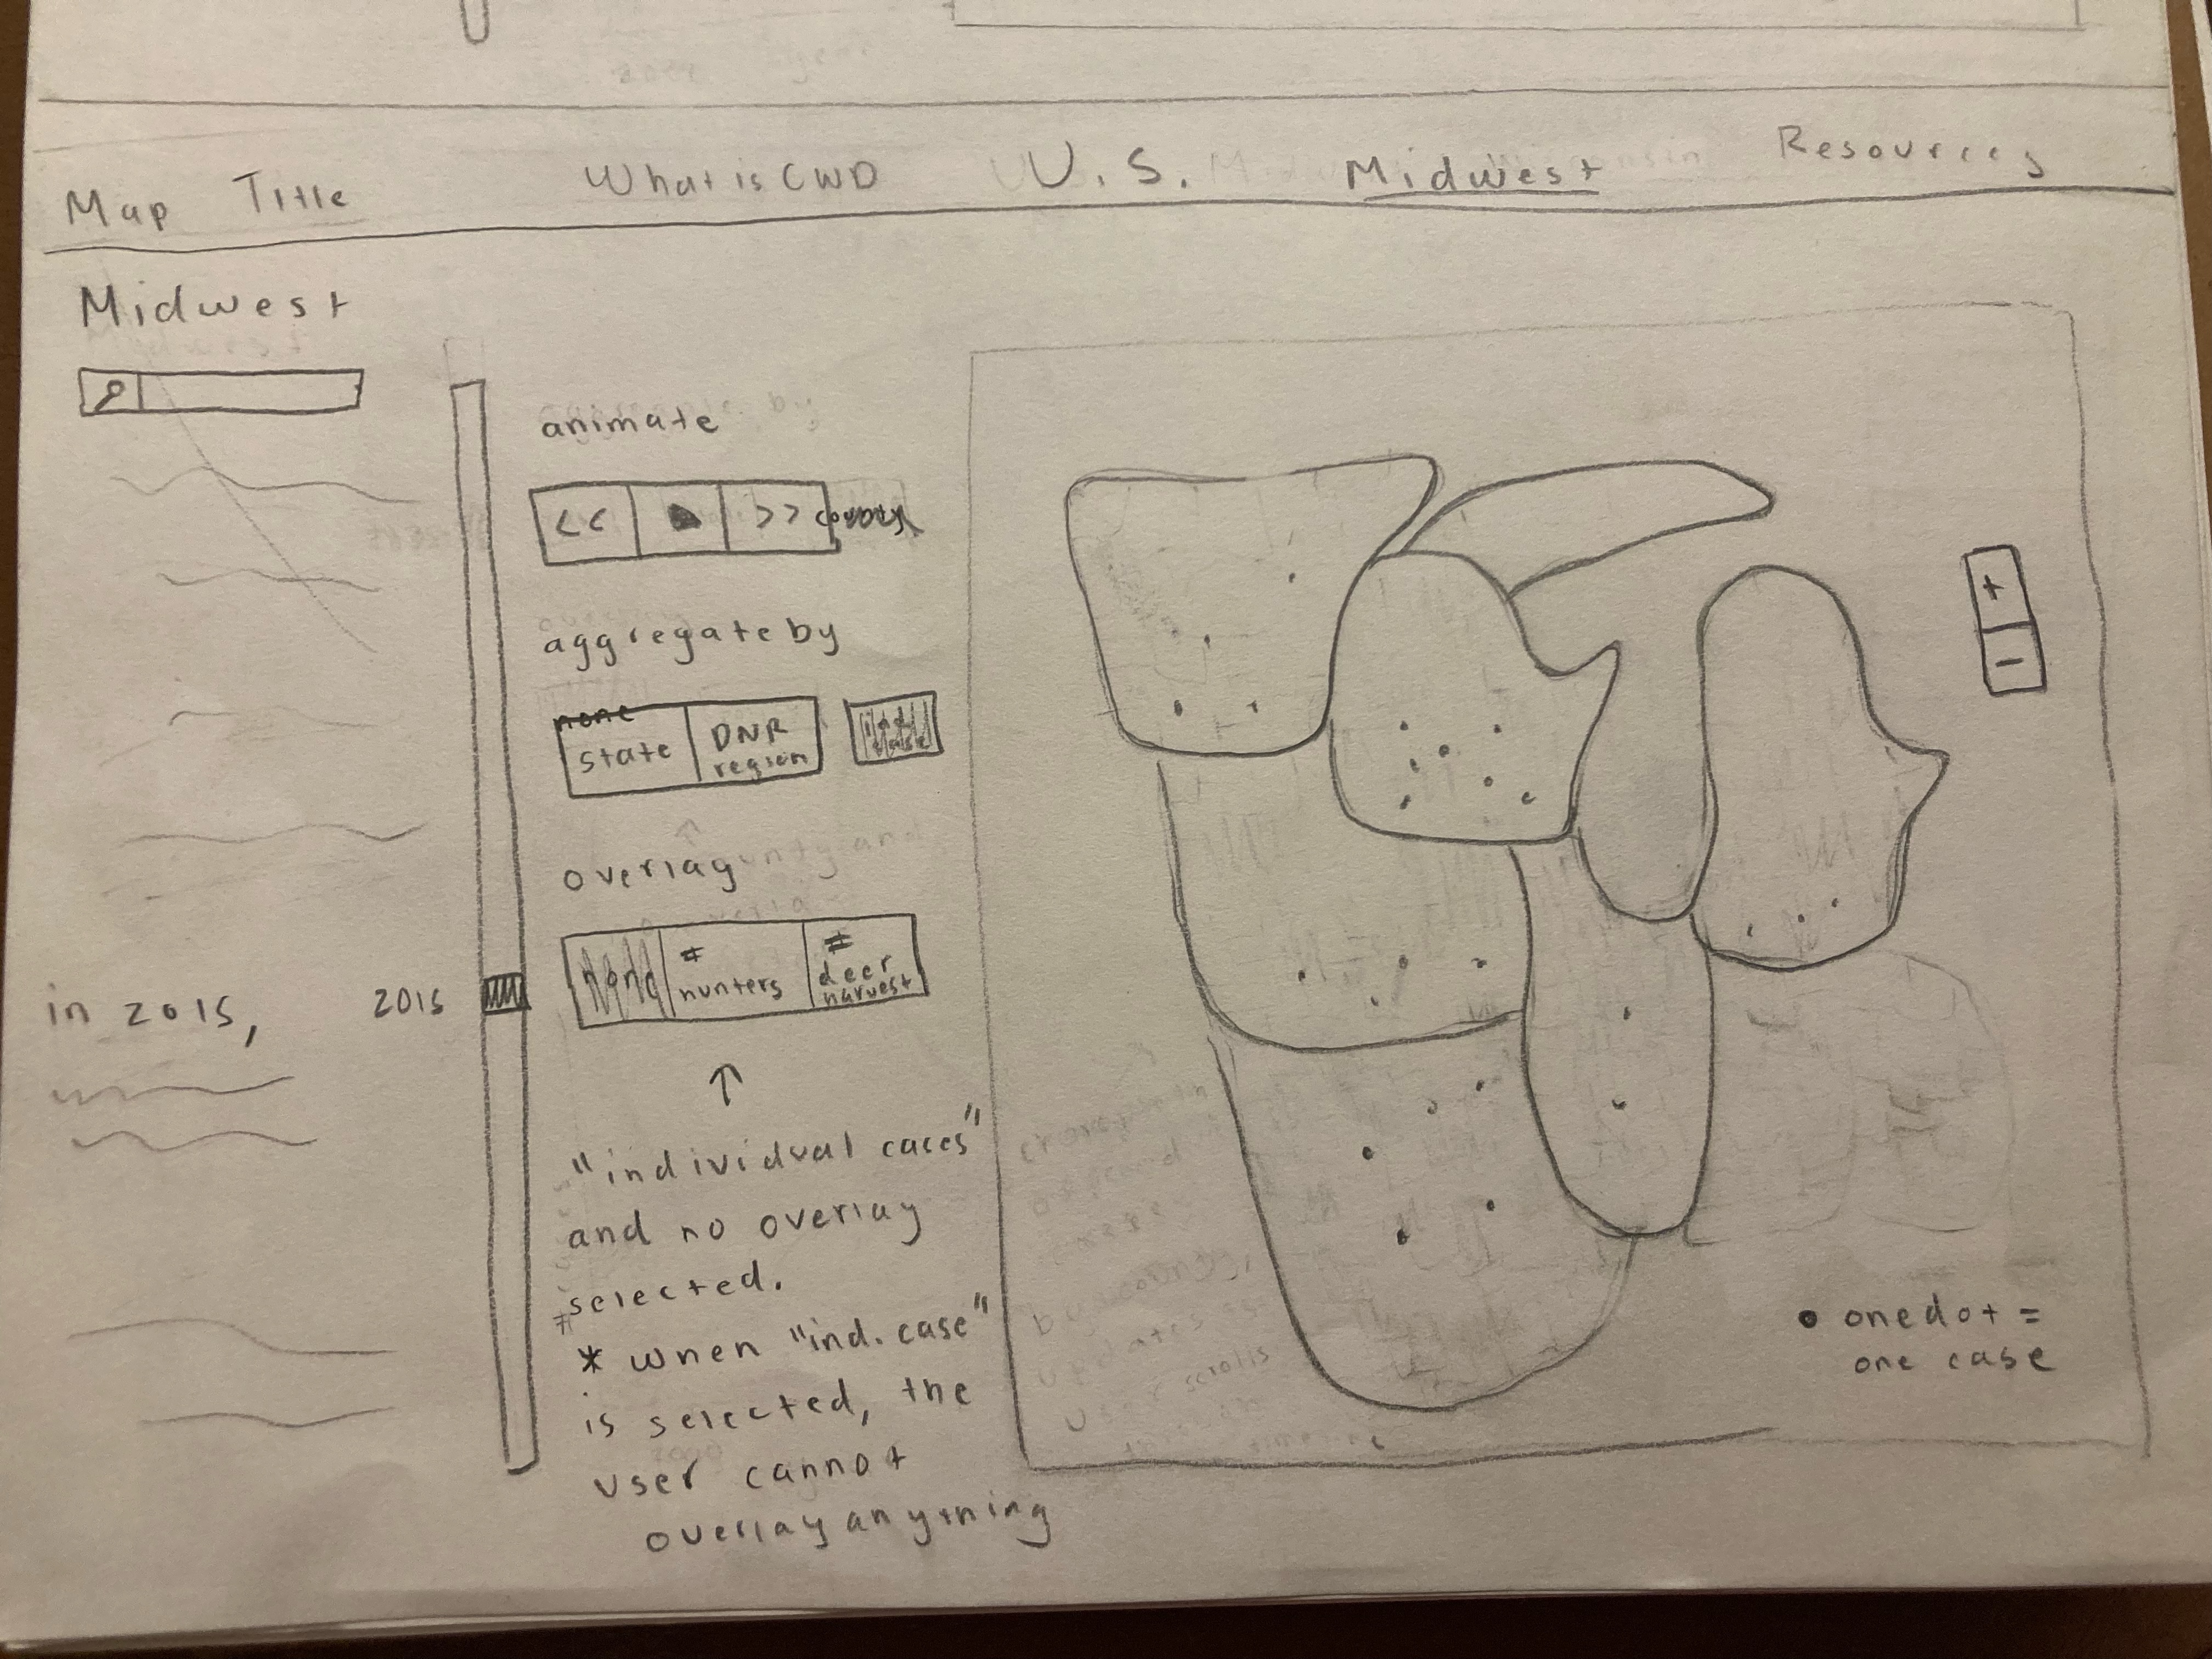 Map Title What is CWD U.S. Midwest Resources
Midwest
animate
<< >> county
aggregate by
none
state DNR
region
overlay
none # hunters # deer harvest
in 2015, 2015
↑
"individual cases"
and no overlay
selected.
* when "ind. case"
is selected, the
user cannot
overlay anything
+
−
• one dot =
one case